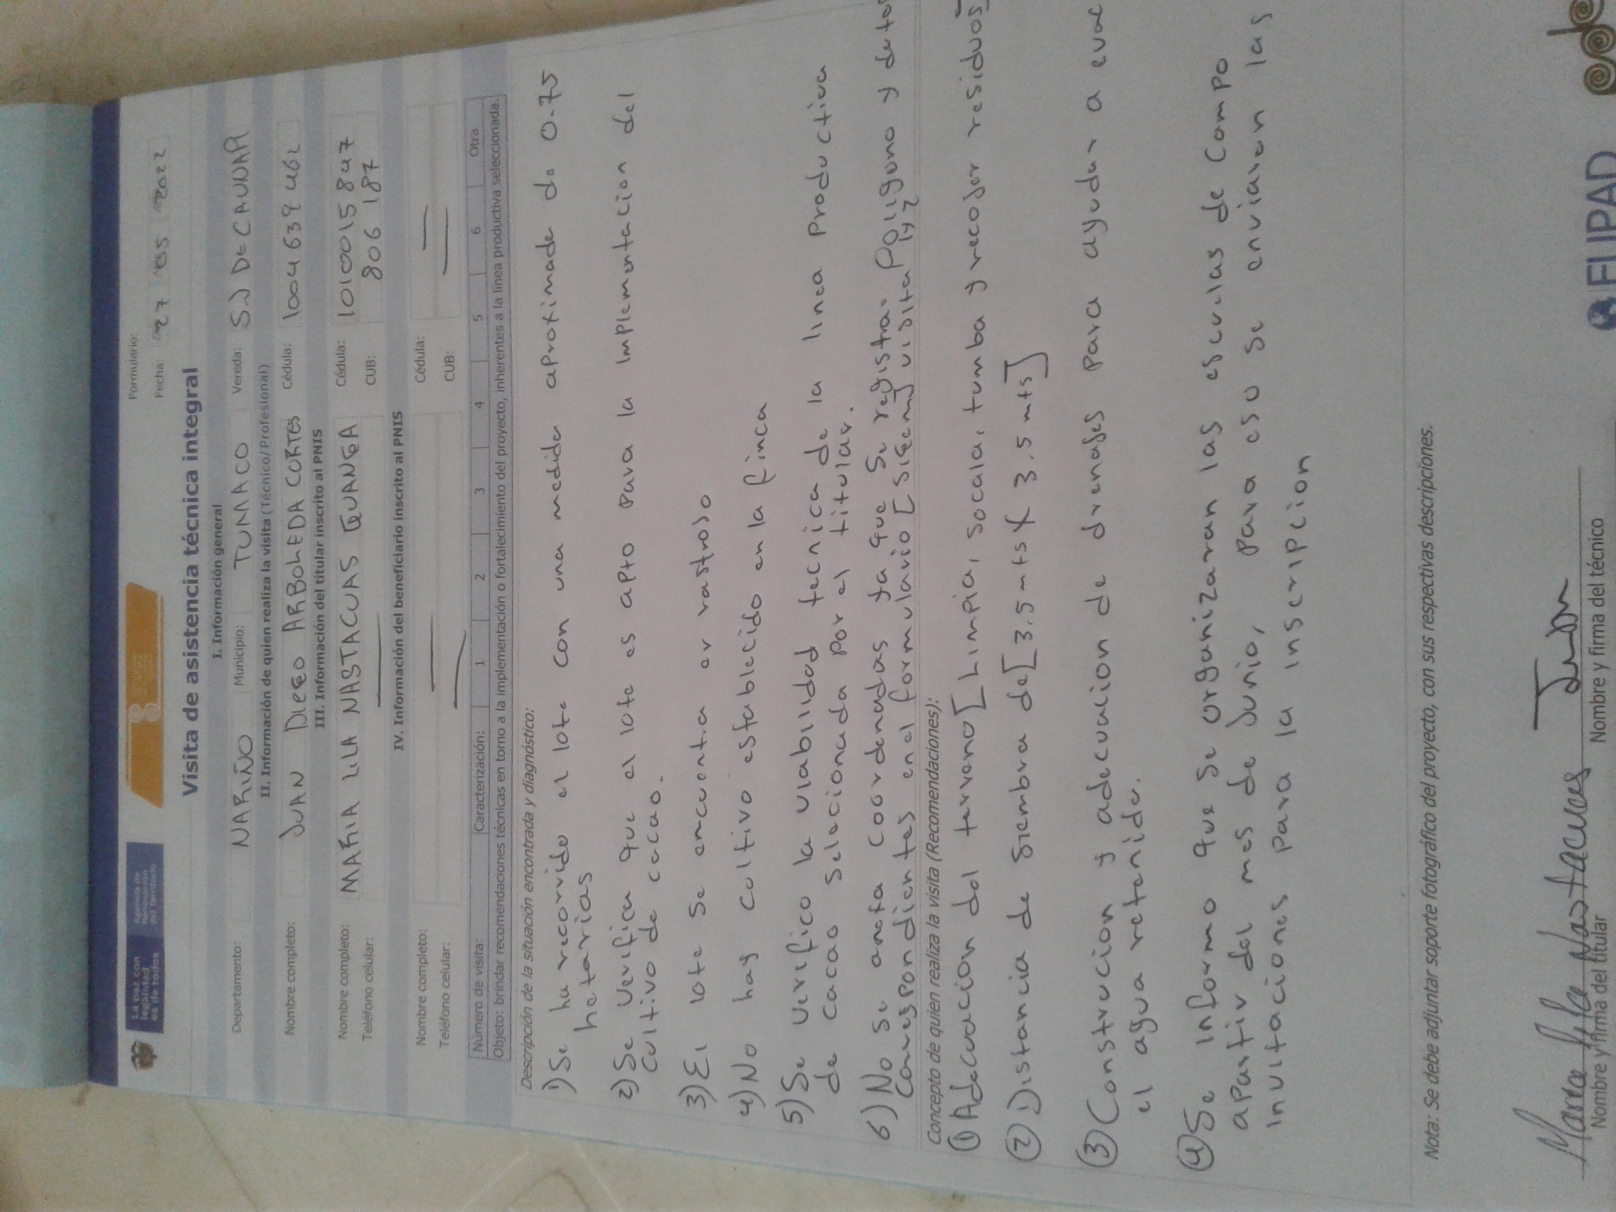 La paz con
legalidad
es de todos
Agencia de
Renovación
del Territorio
Formulario:
Fecha: 27 05 2022
Visita de asistencia técnica integral
I. Información general
Departamento: NARIÑO Municipio: TUMACO Vereda: S.J DE CAUNAPI
II. Información de quien realiza la visita (Técnico/Profesional)
Nombre completo: JUAN DIEGO ARBOLEDA CORTES Cédula: 1004639462
III. Información del titular inscrito al PNIS
Nombre completo: MARIA LILA NASTACUAS GUANGA Cédula: 1010015847
Teléfono celular: — CUB: 806187
IV. Información del beneficiario inscrito al PNIS
Nombre completo: — Cédula: —
Teléfono celular: — CUB: —
Número de visita: Caracterización: 1 2 3 4 5 6 Otra
Objeto: brindar recomendaciones técnicas en torno a la implementación o fortalecimiento del proyecto, inherentes a la línea productiva seleccionada.
Descripción de la situación encontrada y diagnóstico:
1) Se ha recorrido el lote con una medida aproximade de 0.75
hetarias
2) Se Verifica que el lote es apto para la implementacion del
cultivo de cacao.
3) El lote se encuentra en rastrojo
4) No hay cultivo establecido en la finca
5) Se Verifico la viabilidad tecnica de la linea Productiva
de cacao selecionada por el titular.
6) No se anota coordenadas ya que se registra Poligono y
correspondientes en el formulario [ visita 1 y 2
Concepto de quien realiza la visita (Recomendaciones):
① Adecuacion del terreno [Limpia, socala, tumba y recojer residuos
② Distancia de Siembra de [3.5 mts X 3.5 mts]
③ Construcion y adecuacion de drenajes para ayudar a evac
el agua retenida.
④ Se informo que se organizaran las escuelas de Campo
apartir del mes de Junio, para eso se enviaran las
invitaciones para la inscripcion
Nota: Se debe adjuntar soporte fotográfico del proyecto, con sus respectivas descripciones.
Maria Lila Nastacuas Juan
Nombre y firma del titular Nombre y firma del técnico
FUPAD